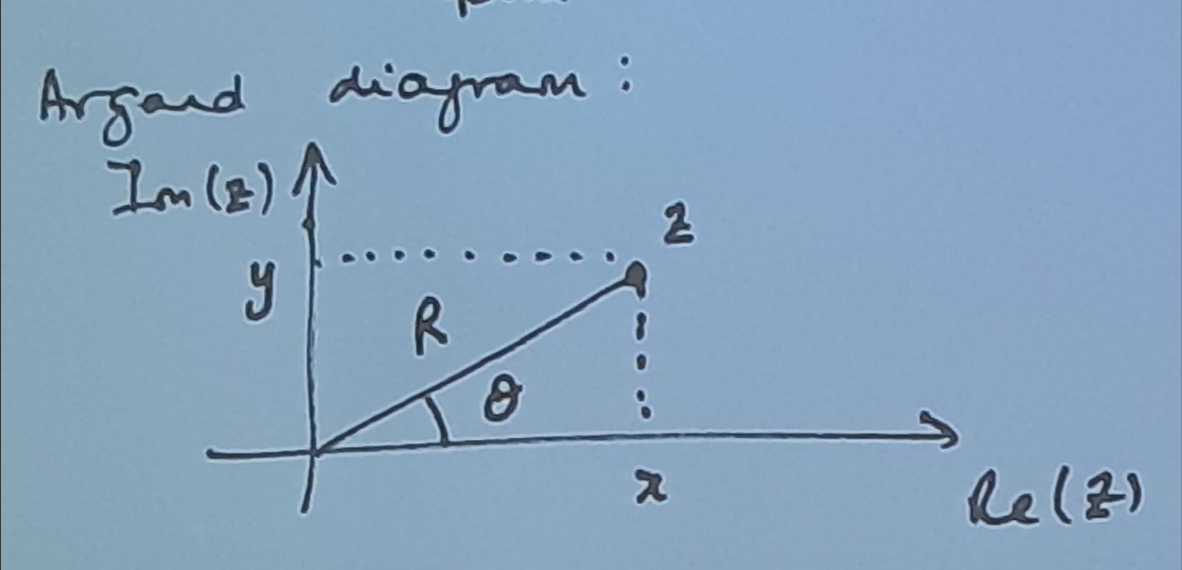 Argand diagram:
Im(z)
z
y
R
θ
x
Re(z)